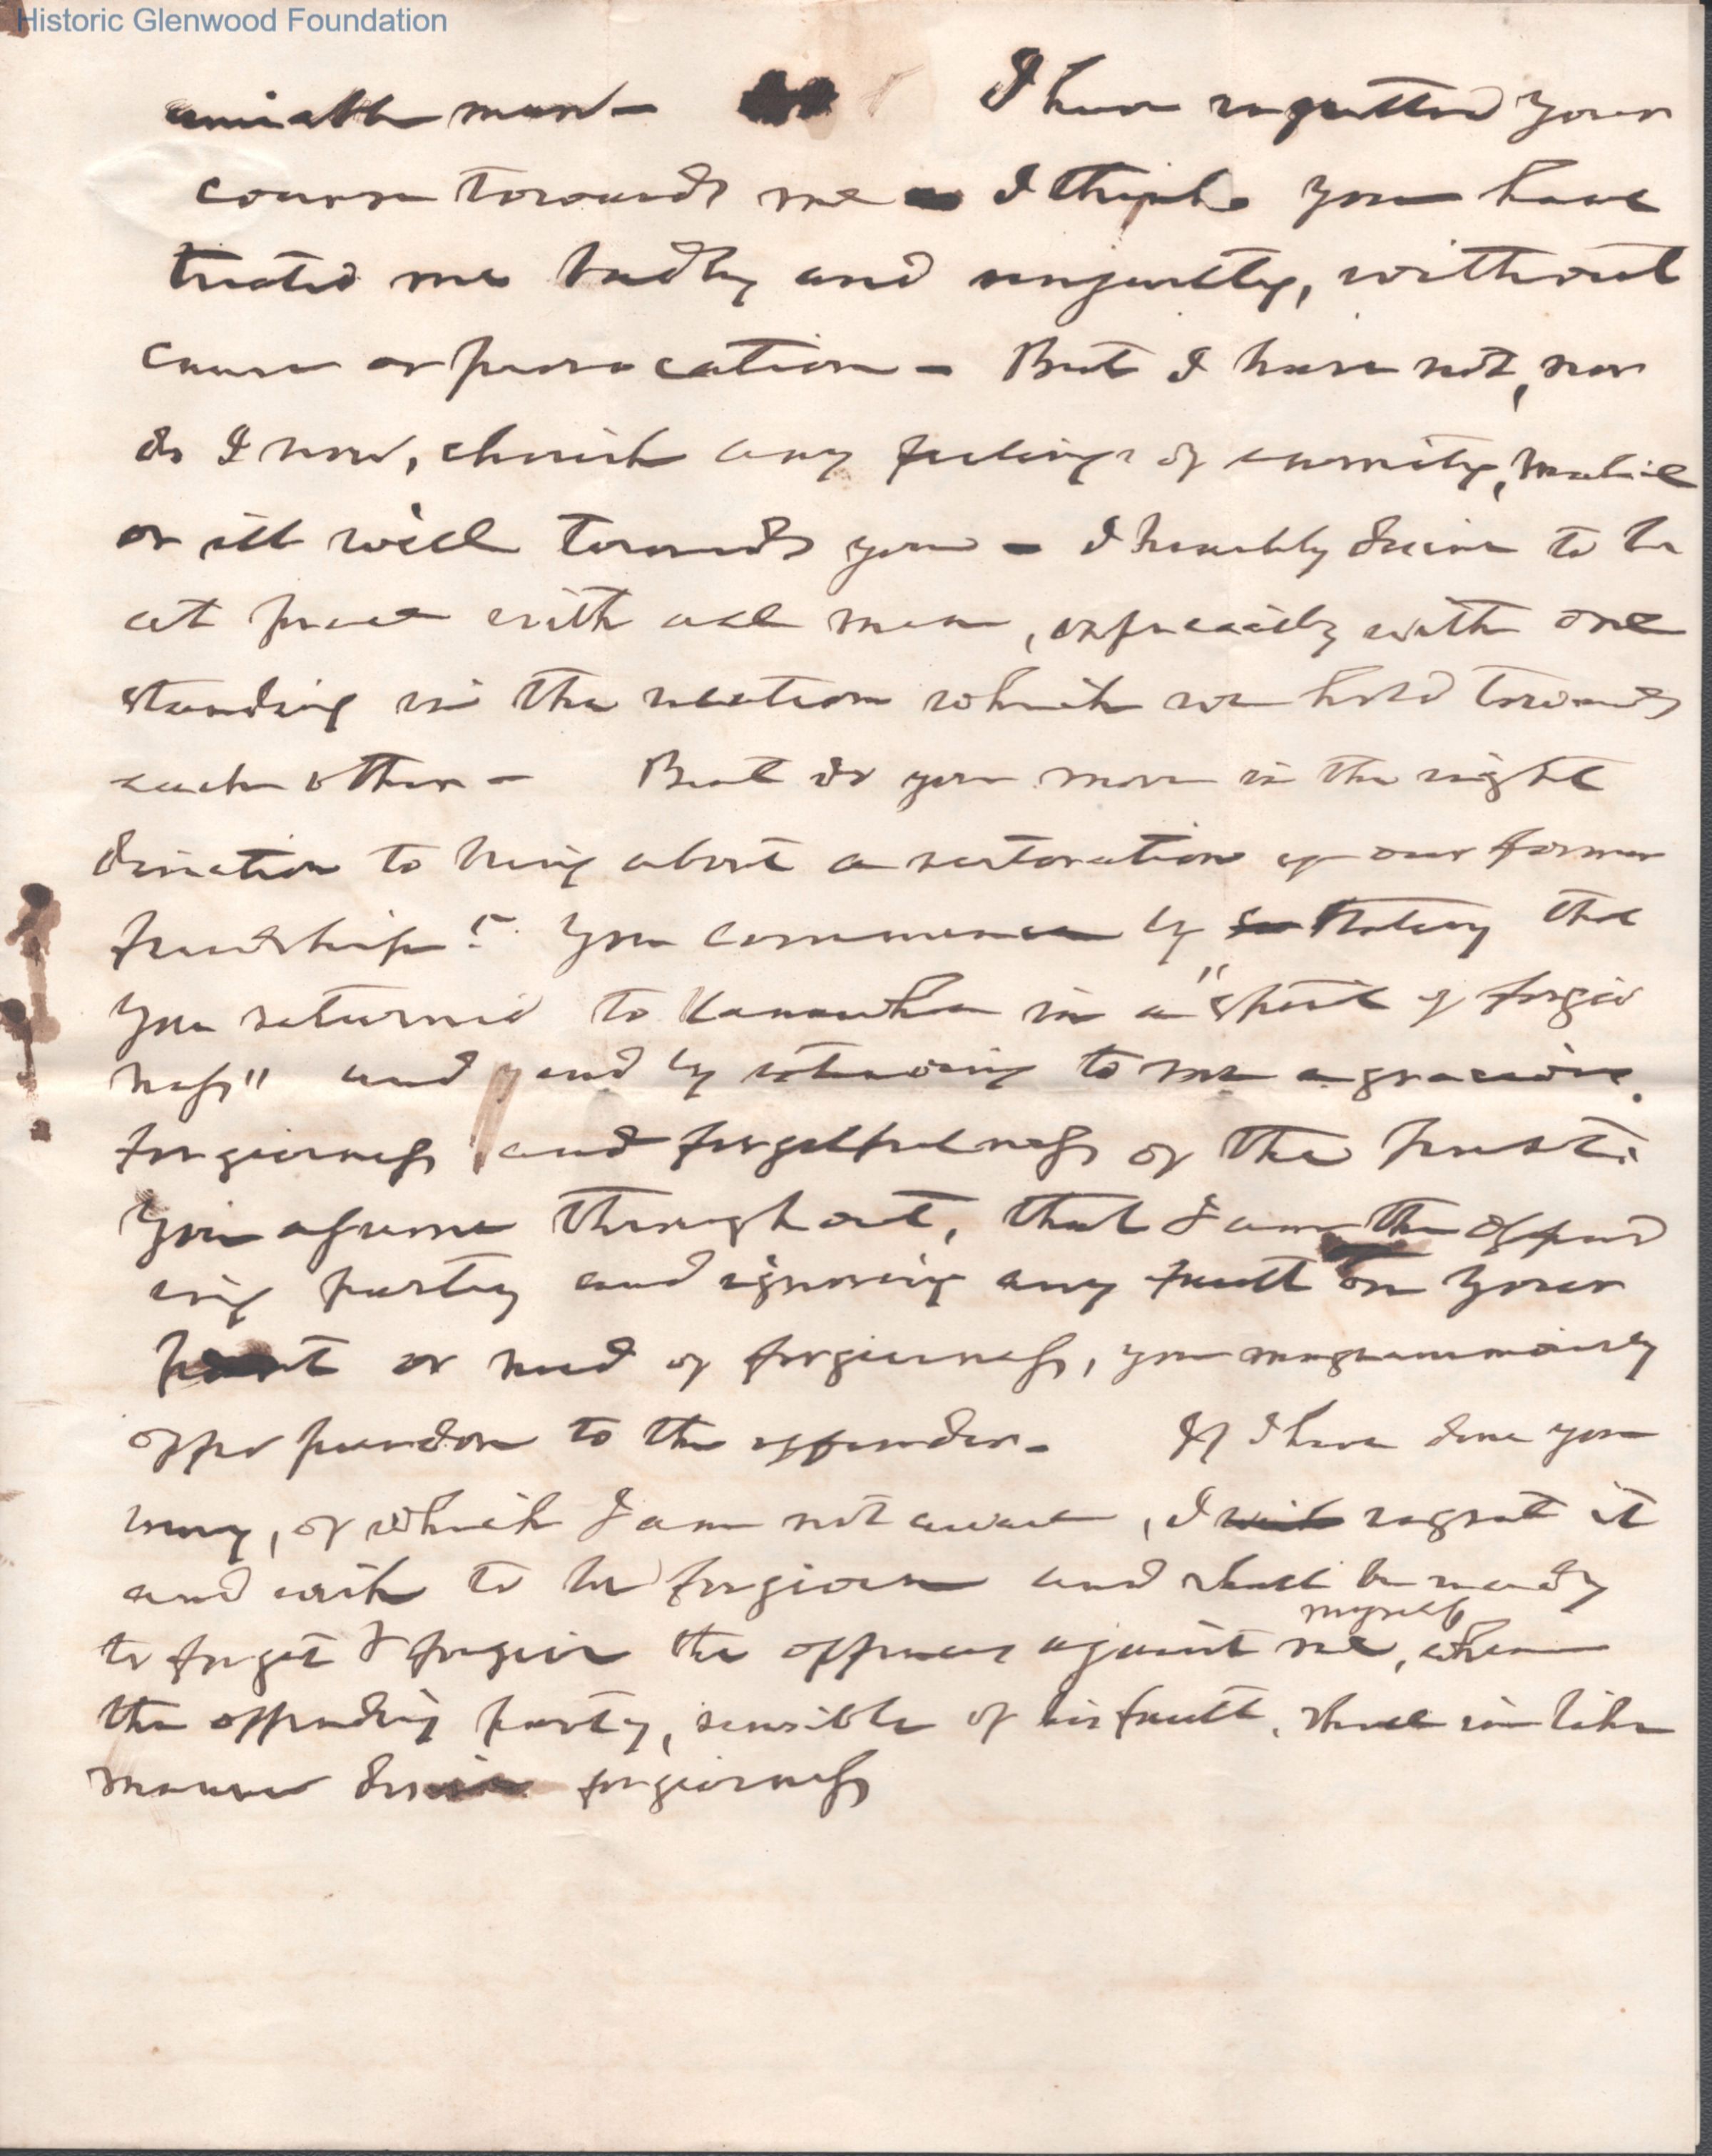 Historic Glenwood Foundation
amiable man - I have regretted your
course towards me - I think you have
treated me badly and unjustly, without
cause or provocation - But I have not, nor
do I now, cherish any feelings of enmity, malice
or ill will towards you - I humbly desire to be
at peace with all men, especially with one
standing in the relation which we hold towards
each other - But do you move in the right
direction to bring about a restoration of our former
friendship? You commence by stating that
you returned to Kanawha in a "spirit of forgive
ness" and and by extending to me a gracious
forgiveness and forgetfulness of the past.
You assume throughout, that I am the offend
ing party and ignoring any fault on your
part or need of forgiveness, you magnanimously
offer pardon to the offender - If I have done you
wrong, of which I am not aware, I wish regret it
and wish to be forgiven and shall be ready
myself
to forget & forgive the offences against me, when
the offending party, sensible of his fault, shall in like
manner desire forgiveness